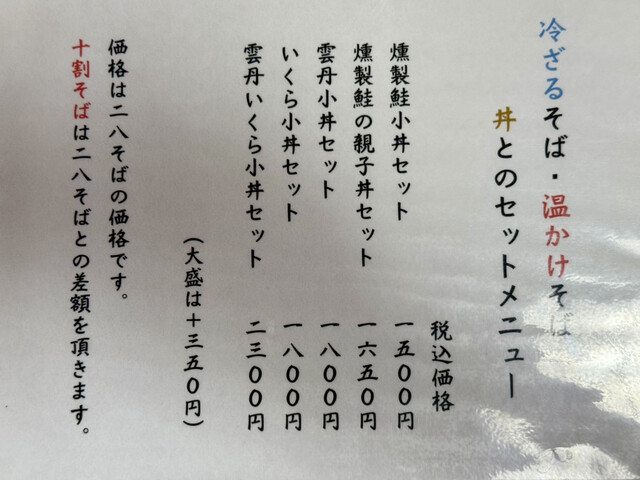 冷ざるそば・温かけそば
丼とのセットメニュー
税込価格
燻製鮭小丼セット 一五００円
燻製鮭の親子丼セット 一六五０円
雲丹小丼セット 一八００円
いくら小丼セット 一八００円
雲丹いくら小丼セット 二三００円
（大盛は＋三五０円）
価格は二八そばの価格です。
十割そばは二八そばとの差額を頂きます。